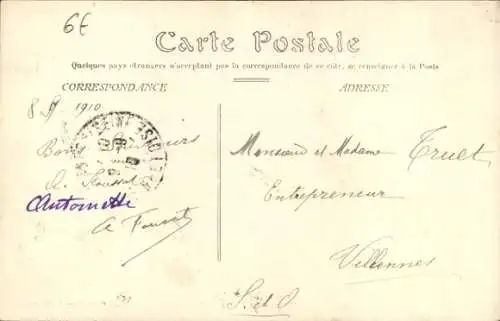 6€
Carte Postale
Quelques pays étrangers n'acceptant pas la correspondance de ce côté, se renseigner à la Poste
CORRESPONDANCE
ADRESSE
1910
Bons
Antoinette
A
Monsieur et Madame Truet
Entrepreneur
Villennes
S. et O.